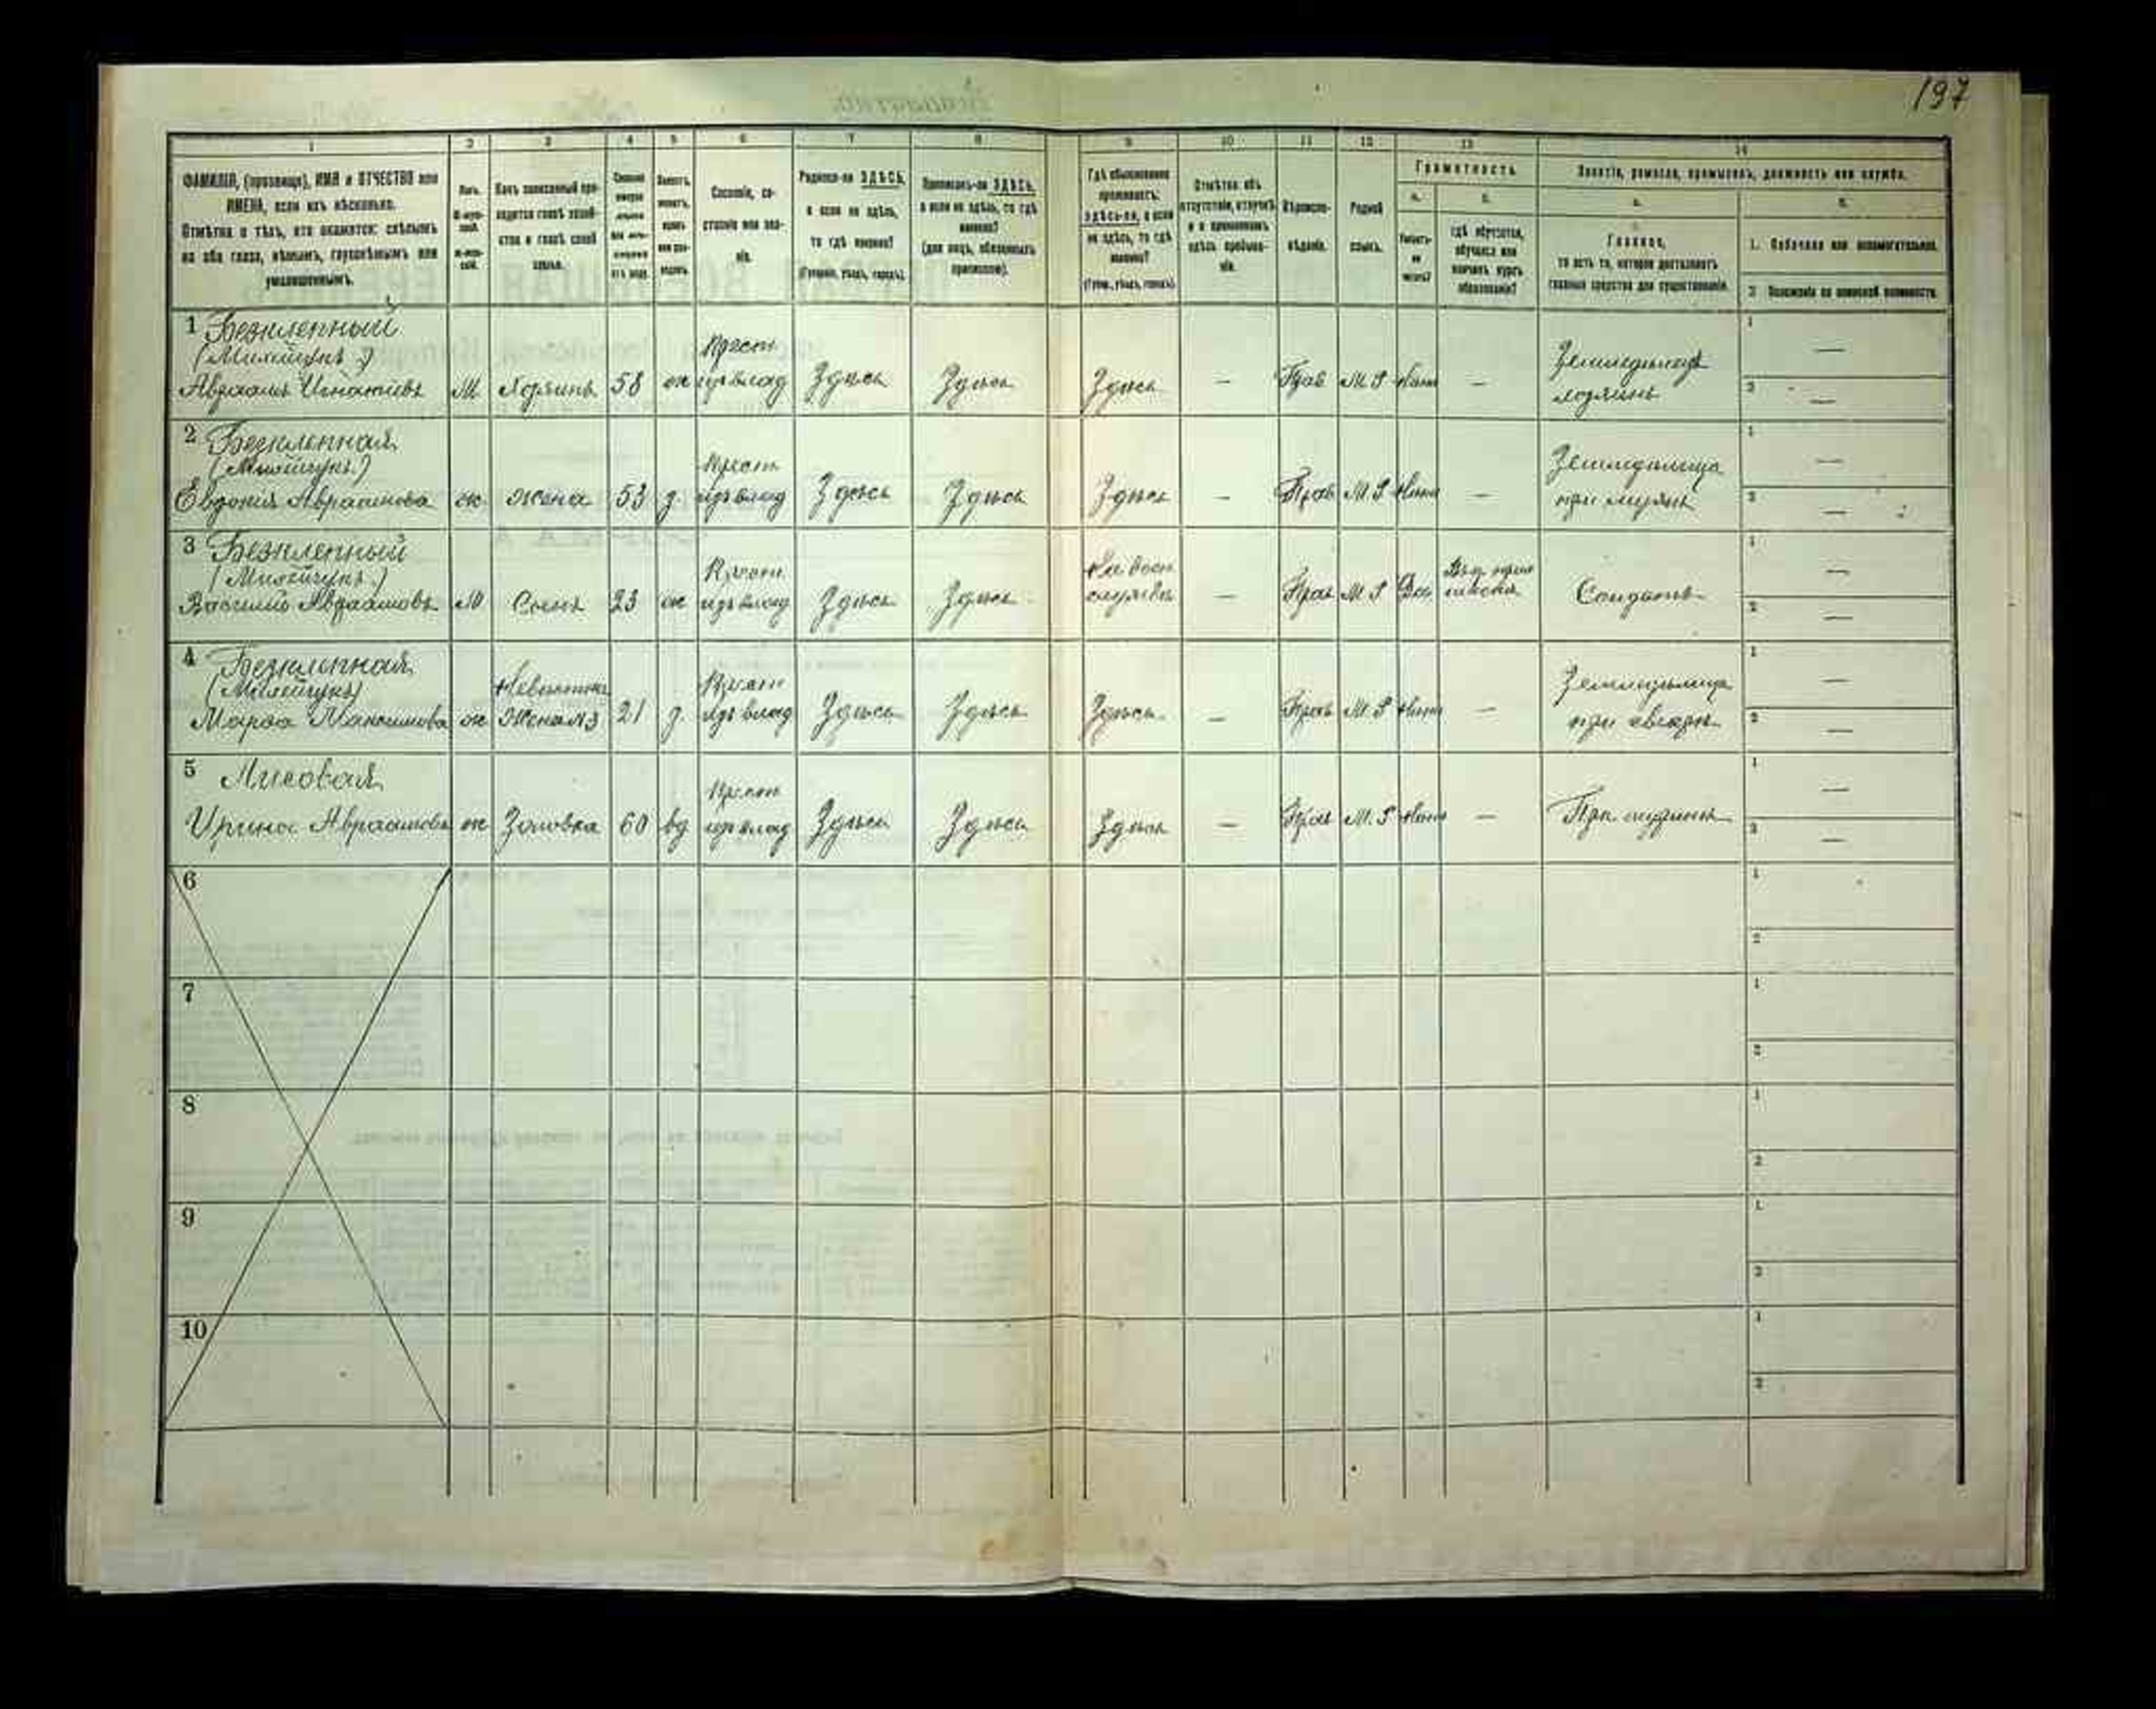 197
1 2 3 4 5 6 7 8 9 10 11 12 13 14
ФАМИЛІЯ, (прозвище), ИМЯ и ОТЧЕСТВО или
ИМЕНА, если ихъ нѣсколько.
Отмѣтка о тѣхъ, кто окажется: слѣпымъ
на оба глаза, нѣмымъ, глухонѣмымъ или
умалишеннымъ.
Полъ.
Какъ записанный при-
ходится главѣ хозяй-
ства и главѣ своей
семьи.
Сословіе, со-
стояніе или зва-
ніе.
Родился-ли ЗДѢСЬ,
а если не здѣсь,
то гдѣ именно?
(Губернія, уѣздъ, городъ).
Приписанъ-ли ЗДѢСЬ,
а если не здѣсь, то гдѣ
именно?
(для лицъ, обязанныхъ
припискою).
Гдѣ обыкновенно
проживаетъ:
здѣсь-ли, а если
не здѣсь, то гдѣ
именно?
(Губер., уѣздъ, городъ).
Отмѣтка объ
отсутствіи, отлучкѣ
и о временномъ
здѣсь пребыва-
ніи.
Вѣроиспо-
вѣданіе.
Родной
языкъ.
Грамотность
а. б.
Умѣетъ-
ли
читать?
гдѣ обучается,
обучался или
кончилъ курсъ
образованія?
Занятіе, ремесло, промыселъ, должность или служба.
а. б.
Главное,
то есть то, которое доставляетъ
главныя средства для существованія.
1. Побочное или вспомогательное.
2 Положеніе по воинской повинности.
1 Безкленный
(Михейчукъ)
Авраамъ Игнатіевъ М Хозяинъ 58 ж Крест изъ влад Здѣсь Здѣсь Здѣсь — Прав М. Р Нѣтъ — Земледѣлецъ хозяинъ 1 — 2 —
2 Безкленная
(Михейчукъ)
Евдокія Авраамова ж жена 53 з. Крест изъ влад Здѣсь Здѣсь Здѣсь — Прав М. Р Нѣтъ — Земледѣлица при мужѣ 1 — 2 —
3 Безкленный
(Михейчукъ)
Василій Авраамовъ М Сынъ 23 ж Крест изъ влад Здѣсь Здѣсь На воен службѣ — Прав М Р Да Солдатъ 1 — 2 —
4 Безкленная
(Михейчукъ)
Марѳа Максимова ж Невѣстка Жена №3 21 з. Крест изъ влад Здѣсь Здѣсь Здѣсь — Прав М. Р Нѣтъ — Земледѣлица при свекрѣ 1 — 2 —
5 Лисовая
Ирина Авраамова ж Золовка 60 вд Крест изъ влад Здѣсь Здѣсь Здѣсь — Прав М. Р Нѣтъ — При 1 — 2 —
6 1 2
7 1 2
8 1 2
9 1 2
10 1 2